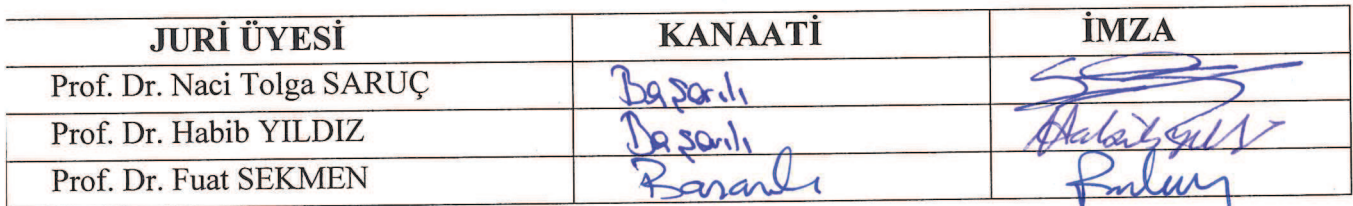 JURİ ÜYESİ KANAATİ İMZA
Prof. Dr. Naci Tolga SARUÇ Başarılı
Prof. Dr. Habib YILDIZ Başarılı
Prof. Dr. Fuat SEKMEN Başarılı